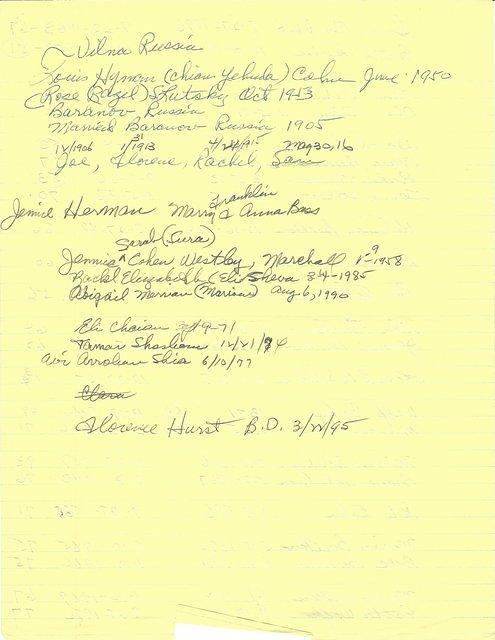 ~ Vilna Russia
Louis Hyman (Chiam Yehuda) Cohen June 1950
(Rose (Razel) Slutsky Oct 1953
Baranov Russia
Married Baranov Russia 1905
12/1906 1/31/1913 Mar 30, 16
Joe, Florence, Rachel, Sam
Franklin
Jennie Herman Marry & Anna Bass
Sarah (Sura)
Jennica ^ Cohen Westley, Marchall 1-9-1958
Rachel Elizabeth (Eli Sheva 3-4-1985
Abigail Merriam (Mariam) Aug 6, 1990
Eli Chaiam 9-71
Tamar Shoshana 12/21/74
Avi Avroham Shia 6/10/77
Clara
Florence Hurst B.D. 3/22/95